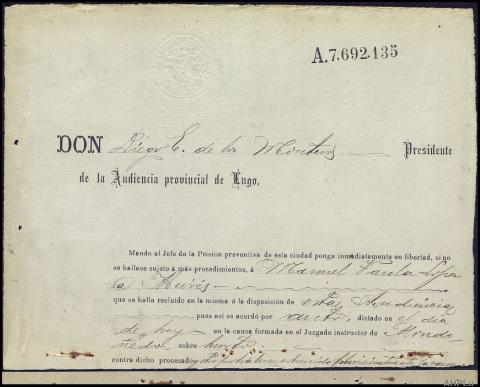 A.7.692.135
DON Diego E. de los Monteros Presidente
de la Audiencia provincial de Lugo.
Mando al Jefe de la Prisión preventiva de esta ciudad ponga inmediatamente en libertad, si no
se hallase sujeto á más procedimientos, á Manuel Varela López
que se halla recluído en la misma á disposición de esta Audiencia
pues así se acordó por auto, dictado en el día
de hoy en la causa formada en el Juzgado instructor de Mondo-
ñedo, sobre hurto
contra dicho procesado